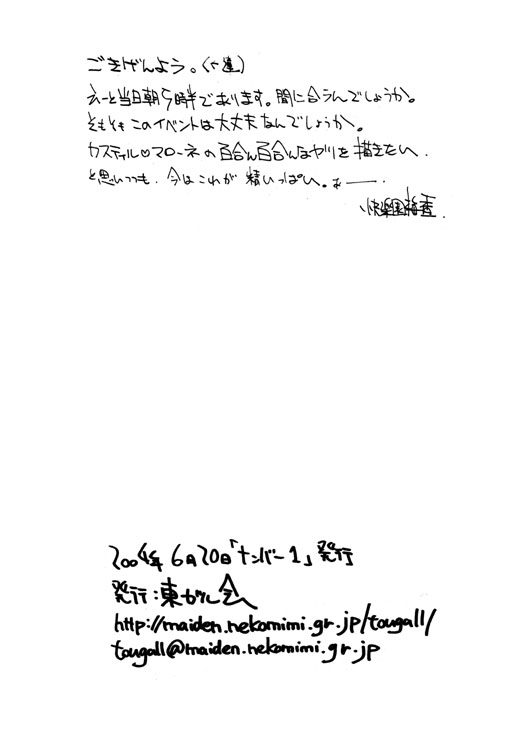 ごきげんよう。
えーと当日朝5時半であります。間に合うんでしょうか。
そもそもこのイベントは大丈夫なんでしょうか。
カスティル♡マローネの百合ん百合んなヤツを描きたい.
と思いつつも、今はこれが精いっぱい。あ——.
快楽園梅香.
2004年6月20日「ナンバー1」発行
発行:東ガル会
http://maiden.nekomimi.gr.jp/tougall/
tougall@maiden.nekomimi.gr.jp